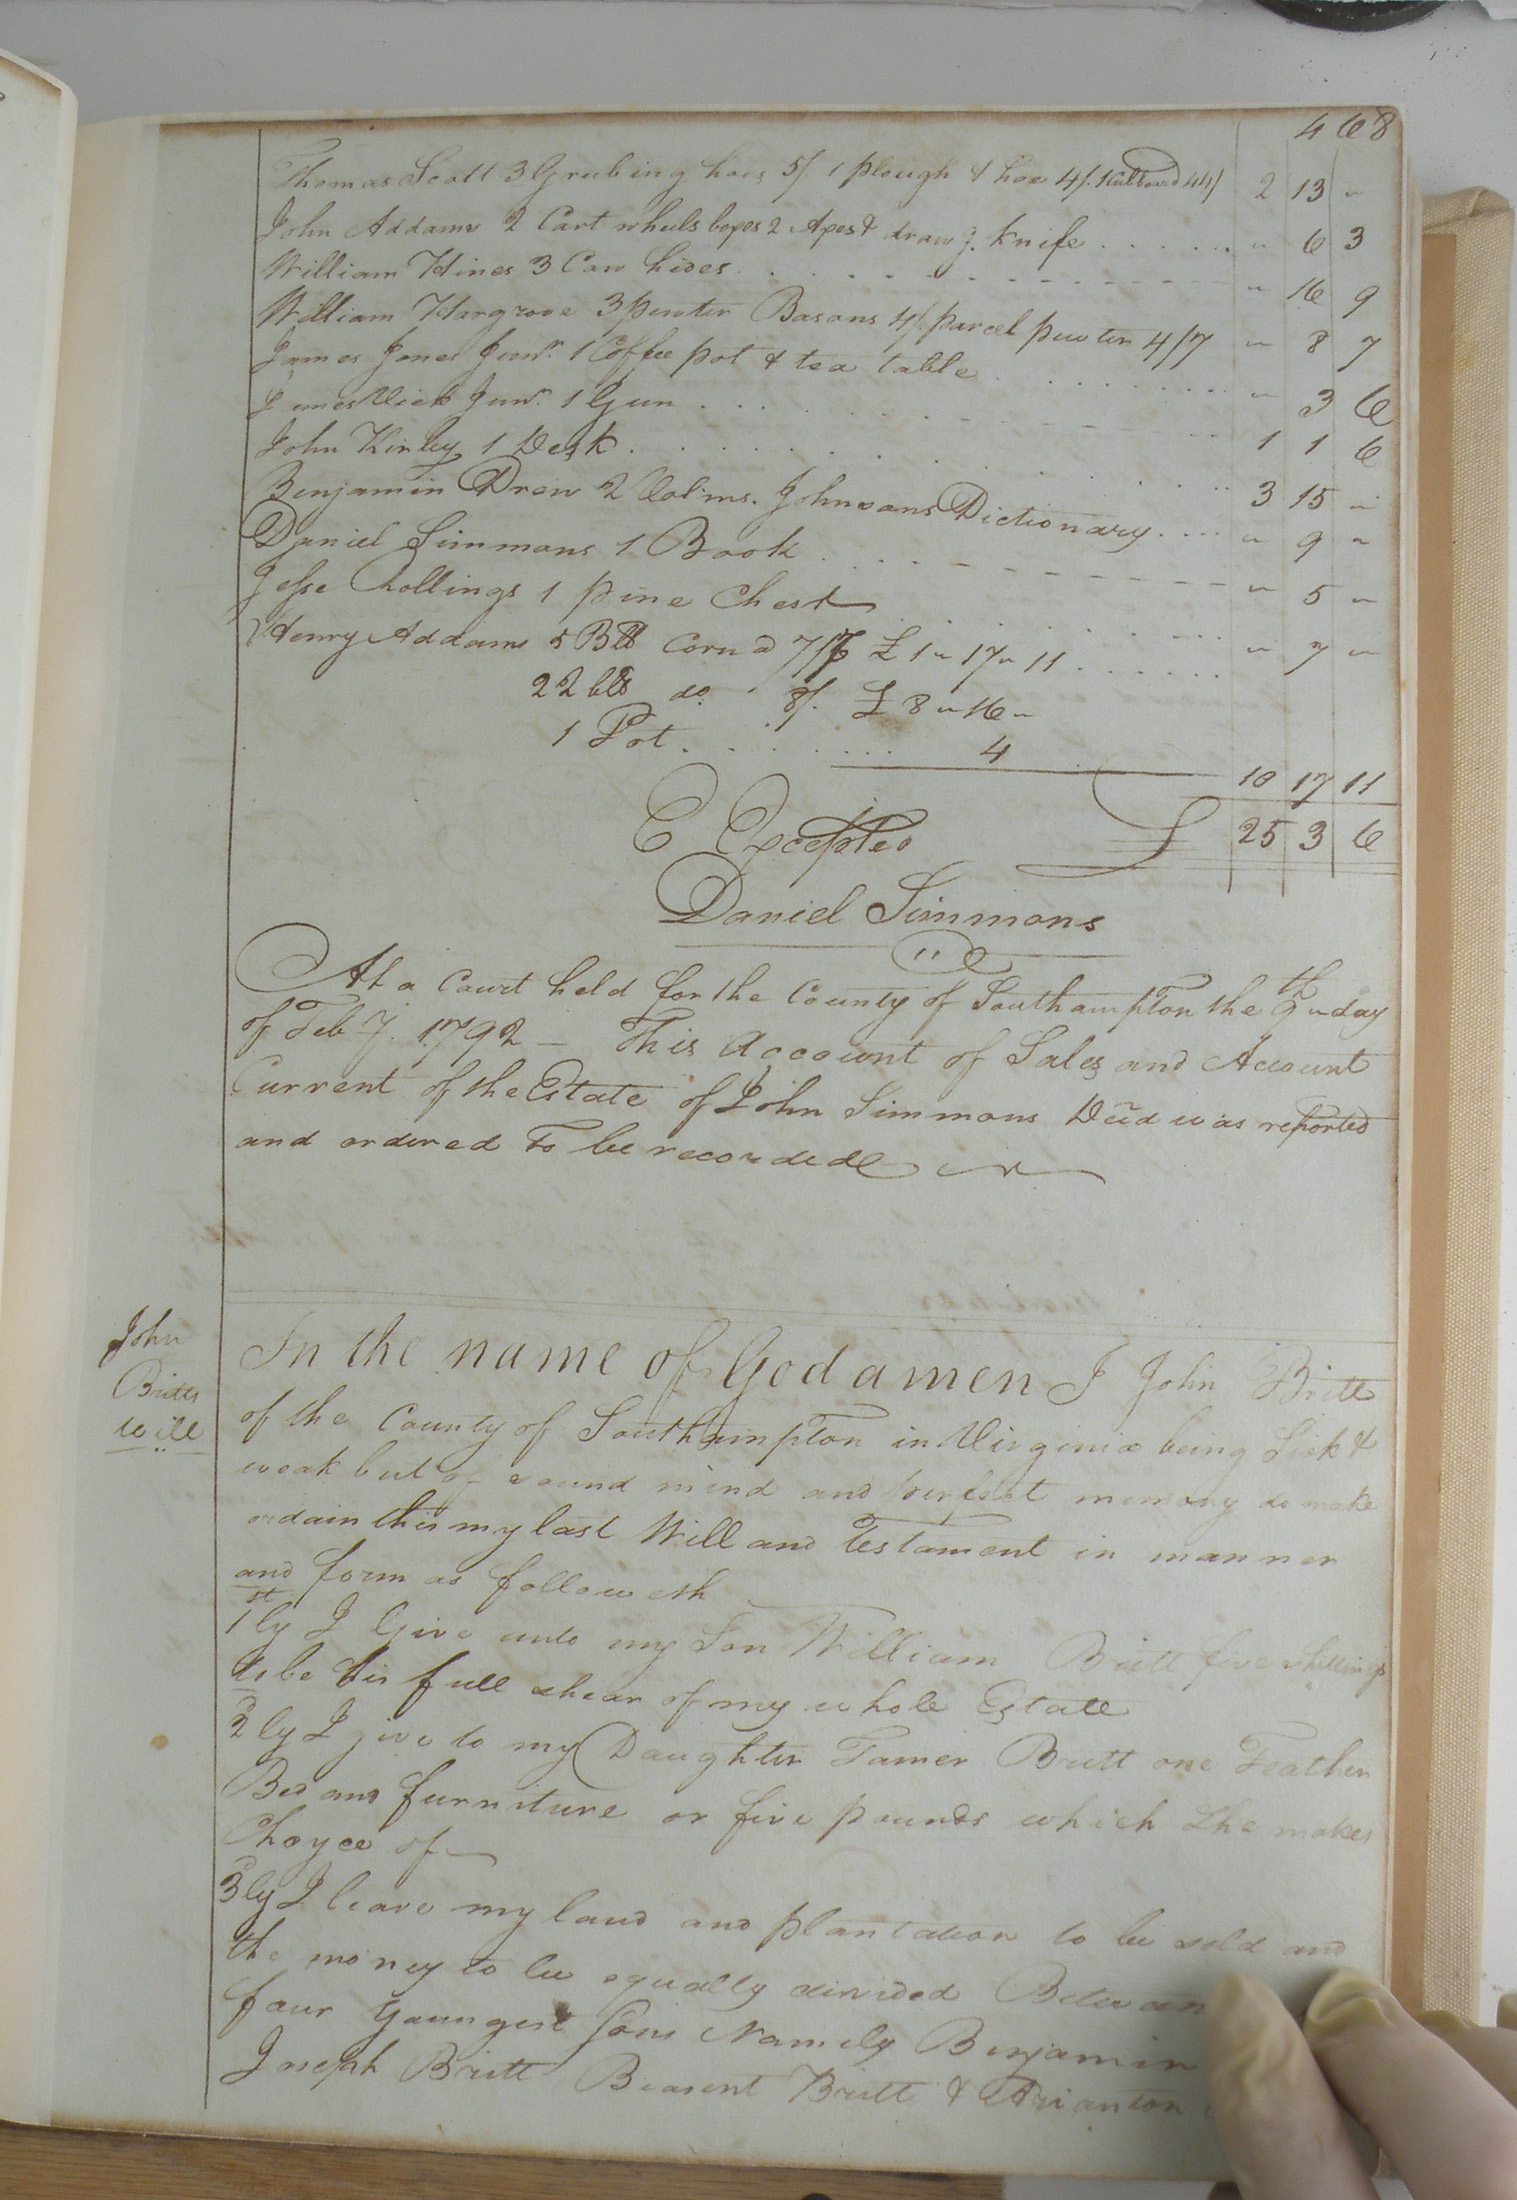 468
Thomas Scott 3 Grubing hoes 5/ 1 plough & hoe 4/. 1 Cubboard 44/ 2 13 "
John Addams 2 Cart wheels boxes 2 Axes & drawg. knife . . . . . . " 6 3
William Hines 3 Cow hides . . . . . . . . " 16 9
William Hargrove 3 pewter Basons 4/. parcel pewter 4/7 " 8 7
James Jones Junr. 1 Coffee pot & tea table . . . . . . . . " 3 6
James Vick Junr. 1 Gun . . . . . . . . 1 1 6
John Kirby 1 Desk . . . . . . . . 3 15 "
Benjamin Drew 2 Volms. Johnsons Dictionary . . . . " 9 "
Daniel Simmons 1 Book . . . . . . . . " 5 "
Jesse Rollings 1 pine Chest . . . . . . . . " 7 "
Henry Addams 5 Bls Corn a 7/7 £ 1 " 17 " 11 . . . . . .
22 bls do. 8/. £ 8 " 16 "
1 Pot . . . . . . 4
10 17 11
E Excepted £ 25 3 6
Daniel Simmons
At a Court held for the County of Southampton the 9th day
of Feby. 1792 — This Account of Sales and Account
Current of the Estate of John Simmons Decd was reported
and ordered to be recorded
John
Britts
will
In the name of God amen I John Britt
of the County of Southampton in Virginia being Sick &
weak but of sound mind and perfect memory do make
ordain this my last Will and Testament in manner
and form as followeth
1st ly I Give unto my Son William Britt five shillings
to be his full shear of my whole Estate
2d ly I give to my Daughter Tamer Britt one Feather
Bed and furniture or five pounds which She makes
Choyce of
3d ly I leave my land and plantation to be sold and
the money to be equally divided Between
four youngest Sons Namely Benjamin
Joseph Britt Beasent Britt & Arianton